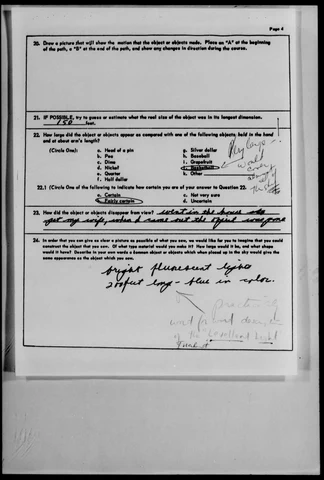 Page 4
20. Draw a picture that will show the motion that the object or objects made. Place an "A" at the beginning
of the path, a "B" at the end of the path, and show any changes in direction during the course.
21. IF POSSIBLE, try to guess or estimate what the real size of the object was in its longest dimension.
150 feet.
22. How large did the object or objects appear as compared with one of the following objects held in the hand
and at about arm's length?
(Circle One):
a. Head of a pin
b. Pea
c. Dime
d. Nickel
e. Quarter
f. Half dollar
g. Silver dollar
h. Baseball
i. Grapefruit
j. Basketball
k. Other
Very large
would
cover
of
the
22.1 (Circle One of the following to indicate how certain you are of your answer to Question 22.
a. Certain
b. Fairly certain
c. Not very sure
d. Uncertain
23. How did the object or objects disappear from view? went in the house to
get my wife, when I came out the object was gone
24. In order that you can give as clear a picture as possible of what you saw, we would like for you to imagine that you could
construct the object that you saw. Of what type material would you make it? How large would it be, and what shape
would it have? Describe in your own words a common object or objects which when placed up in the sky would give the
same appearance as the object which you saw.
bright fluorescent lights
200 feet long - blue in color.
practically
word for word
of the